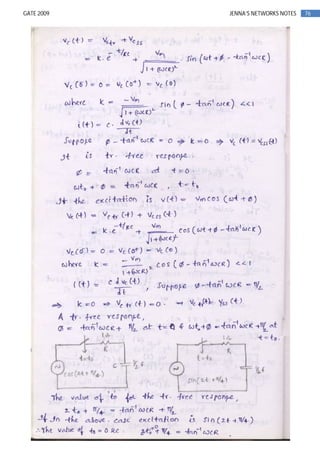 GATE 2009 JENNA'S NETWORKS NOTES 76
Vc(t) = Vctr + Vcss
= k.e^-t/RC + Vm/√(1+(ωCR)² sin(ωt+φ-tan⁻¹ωCR).
Vc(0⁻) = 0 = Vc(0⁺) = Vc(0)
where k = -Vm/√(1+(ωCR)² sin(φ-tan⁻¹ωCR) <<1
i(t) = c. dvc(t)/dt
Suppose φ-tan⁻¹ωCR = 0 ⇒ k=0 ⇒ Vc(t) = Vcss(t)
It is tr-free response.
φ = tan⁻¹ωCR at t=0.
ωt₀ + φ = tan⁻¹ωCR, t=t₀
It the excitation is v(t) = Vm cos(ωt+φ)
Vc(t) = Vctr(t) + Vcss(t)
= k.e^-t/RC + Vm/√(1+(ωCR)² cos(ωt+φ-tan⁻¹ωCR)
Vc(0⁻) = 0 = Vc(0⁺) = Vc(0)
where k = -Vm/√(1+(ωCR)² cos(φ-tan⁻¹ωCR) <<1
i(t) = c dvc(t)/dt, Suppose φ-tan⁻¹ωCR = π/2
⇒ k=0 ⇒ Vctr(t) = 0. ⇒ Vc(t) = Vss(t)
A tr-free response,
φ = tan⁻¹ωCR + π/2 at t=0 & ωt₀+φ = tan⁻¹ωCR + π/2 at
t=t₀.
1Ω R t=t₀ cos(2t+π/4) C
1Ω R t=t₀ sin(2t+π/4)
The value of t₀ for the tr-free response,
2t₀ + π/4 = tan⁻¹ωCR + π/2
If In the above case excitation is sin(2t+π/4)
∴ The value of t₀ = 0 sec 2t₀ + π/4 = tan⁻¹ωCR